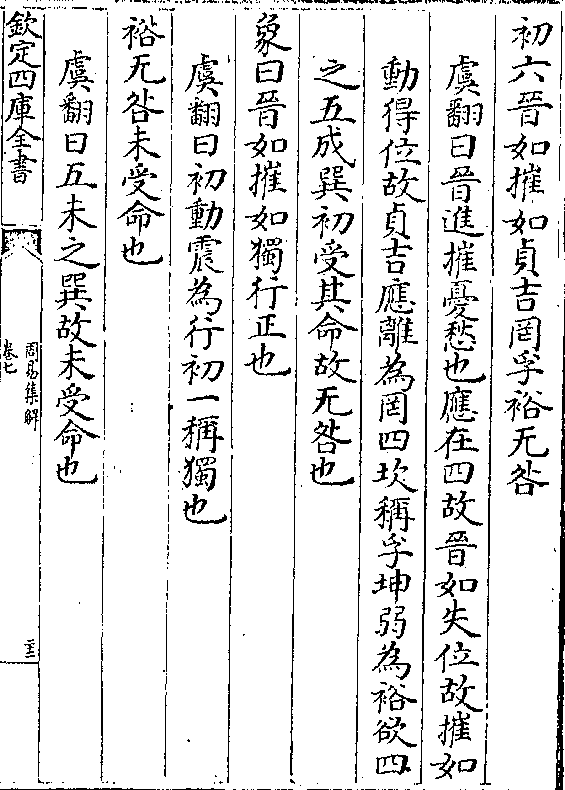 初六晉如摧如貞吉罔孚裕无咎
虞翻曰晉進摧憂愁也應在四故晉如失位故摧如
動得位故貞吉應離為罔四坎稱孚坤弱為裕欲四
之五成巽初受其命故无咎也
象曰晉如摧如獨行正也
虞翻曰初動震為行初一稱獨也
裕无咎未受命也
虞翻曰五未之巽故未受命也
欽定四庫全書
周易集解
卷七